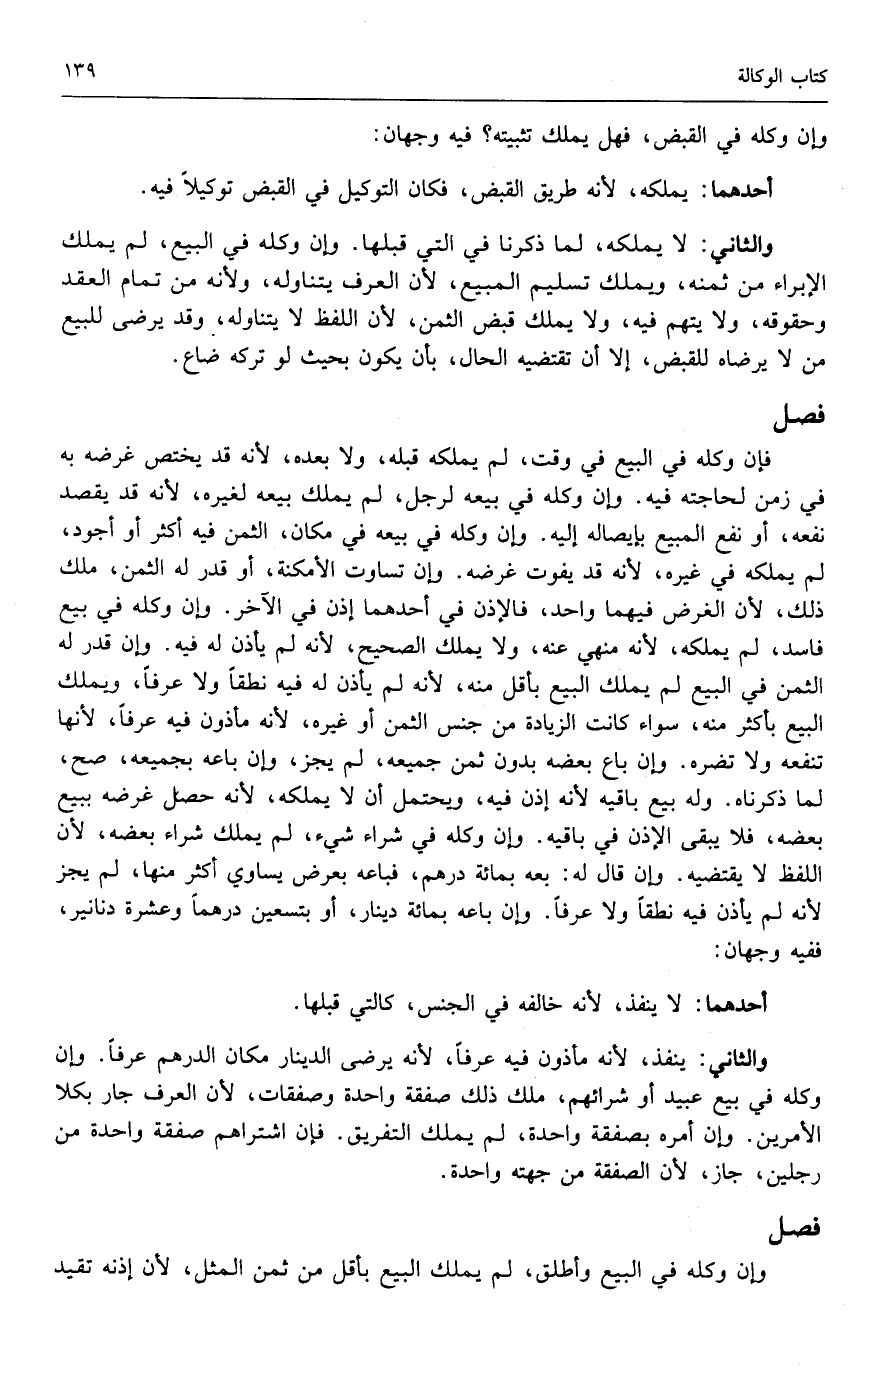 كتاب الوكالة ١٣٩
وإن وكله في القبض، فهل يملك تثبيته؟ فيه وجهان:
أحدهما: يملكه، لأنه طريق القبض، فكان التوكيل في القبض توكيلاً فيه.
والثاني: لا يملكه، لما ذكرنا في التي قبلها. وإن وكله في البيع، لم يملك
الإبراء من ثمنه، ويملك تسليم المبيع، لأن العرف يتناوله، ولأنه من تمام العقد
وحقوقه، ولا يتهم فيه، ولا يملك قبض الثمن، لأن اللفظ لا يتناوله، وقد يرضى للبيع
من لا يرضاه للقبض، إلا أن تقتضيه الحال، بأن يكون بحيث لو تركه ضاع.
فصل
فإن وكله في البيع في وقت، لم يملكه قبله، ولا بعده، لأنه قد يختص غرضه به
في زمن لحاجته فيه. وإن وكله في بيعه لرجل، لم يملك بيعه لغيره، لأنه قد يقصد
نفعه، أو نفع المبيع بإيصاله إليه. وإن وكله في بيعه في مكان، الثمن فيه أكثر أو أجود،
لم يملكه في غيره، لأنه قد يفوت غرضه. وإن تساوت الأمكنة، أو قدر له الثمن، ملك
ذلك، لأن الغرض فيهما واحد، فالإذن في أحدهما إذن في الآخر. وإن وكله في بيع
فاسد، لم يملكه، لأنه منهي عنه، ولا يملك الصحيح، لأنه لم يأذن له فيه. وإن قدر له
الثمن في البيع لم يملك البيع بأقل منه، لأنه لم يأذن له فيه نطقاً ولا عرفاً، ويملك
البيع بأكثر منه، سواء كانت الزيادة من جنس الثمن أو غيره، لأنه مأذون فيه عرفاً، لأنها
تنفعه ولا تضره. وإن باع بعضه بدون ثمن جميعه، لم يجز، وإن باعه بجميعه، صح،
لما ذكرناه. وله بيع باقيه لأنه إذن فيه، ويحتمل أن لا يملكه، لأنه حصل غرضه ببيع
بعضه، فلا يبقى الإذن في باقيه. وإن وكله في شراء شيء، لم يملك شراء بعضه، لأن
اللفظ لا يقتضيه. وإن قال له: بعه بمائة درهم، فباعه بعرض يساوي أكثر منها، لم يجز
لأنه لم يأذن فيه نطقاً ولا عرفاً. وإن باعه بمائة دينار، أو بتسعين درهماً وعشرة دنانير،
ففيه وجهان:
أحدهما: لا ينفذ، لأنه خالفه في الجنس، كالتي قبلها.
والثاني: ينفذ، لأنه مأذون فيه عرفاً، لأنه يرضى الدينار مكان الدرهم عرفاً. وإن
وكله في بيع عبيد أو شرائهم، ملك ذلك صفقة واحدة وصفقات، لأن العرف جار بكلا
الأمرين. وإن أمره بصفقة واحدة، لم يملك التفريق. فإن اشتراهم صفقة واحدة من
رجلين، جاز، لأن الصفقة من جهته واحدة.
فصل
وإن وكله في البيع وأطلق، لم يملك البيع بأقل من ثمن المثل، لأن إذنه تقيد